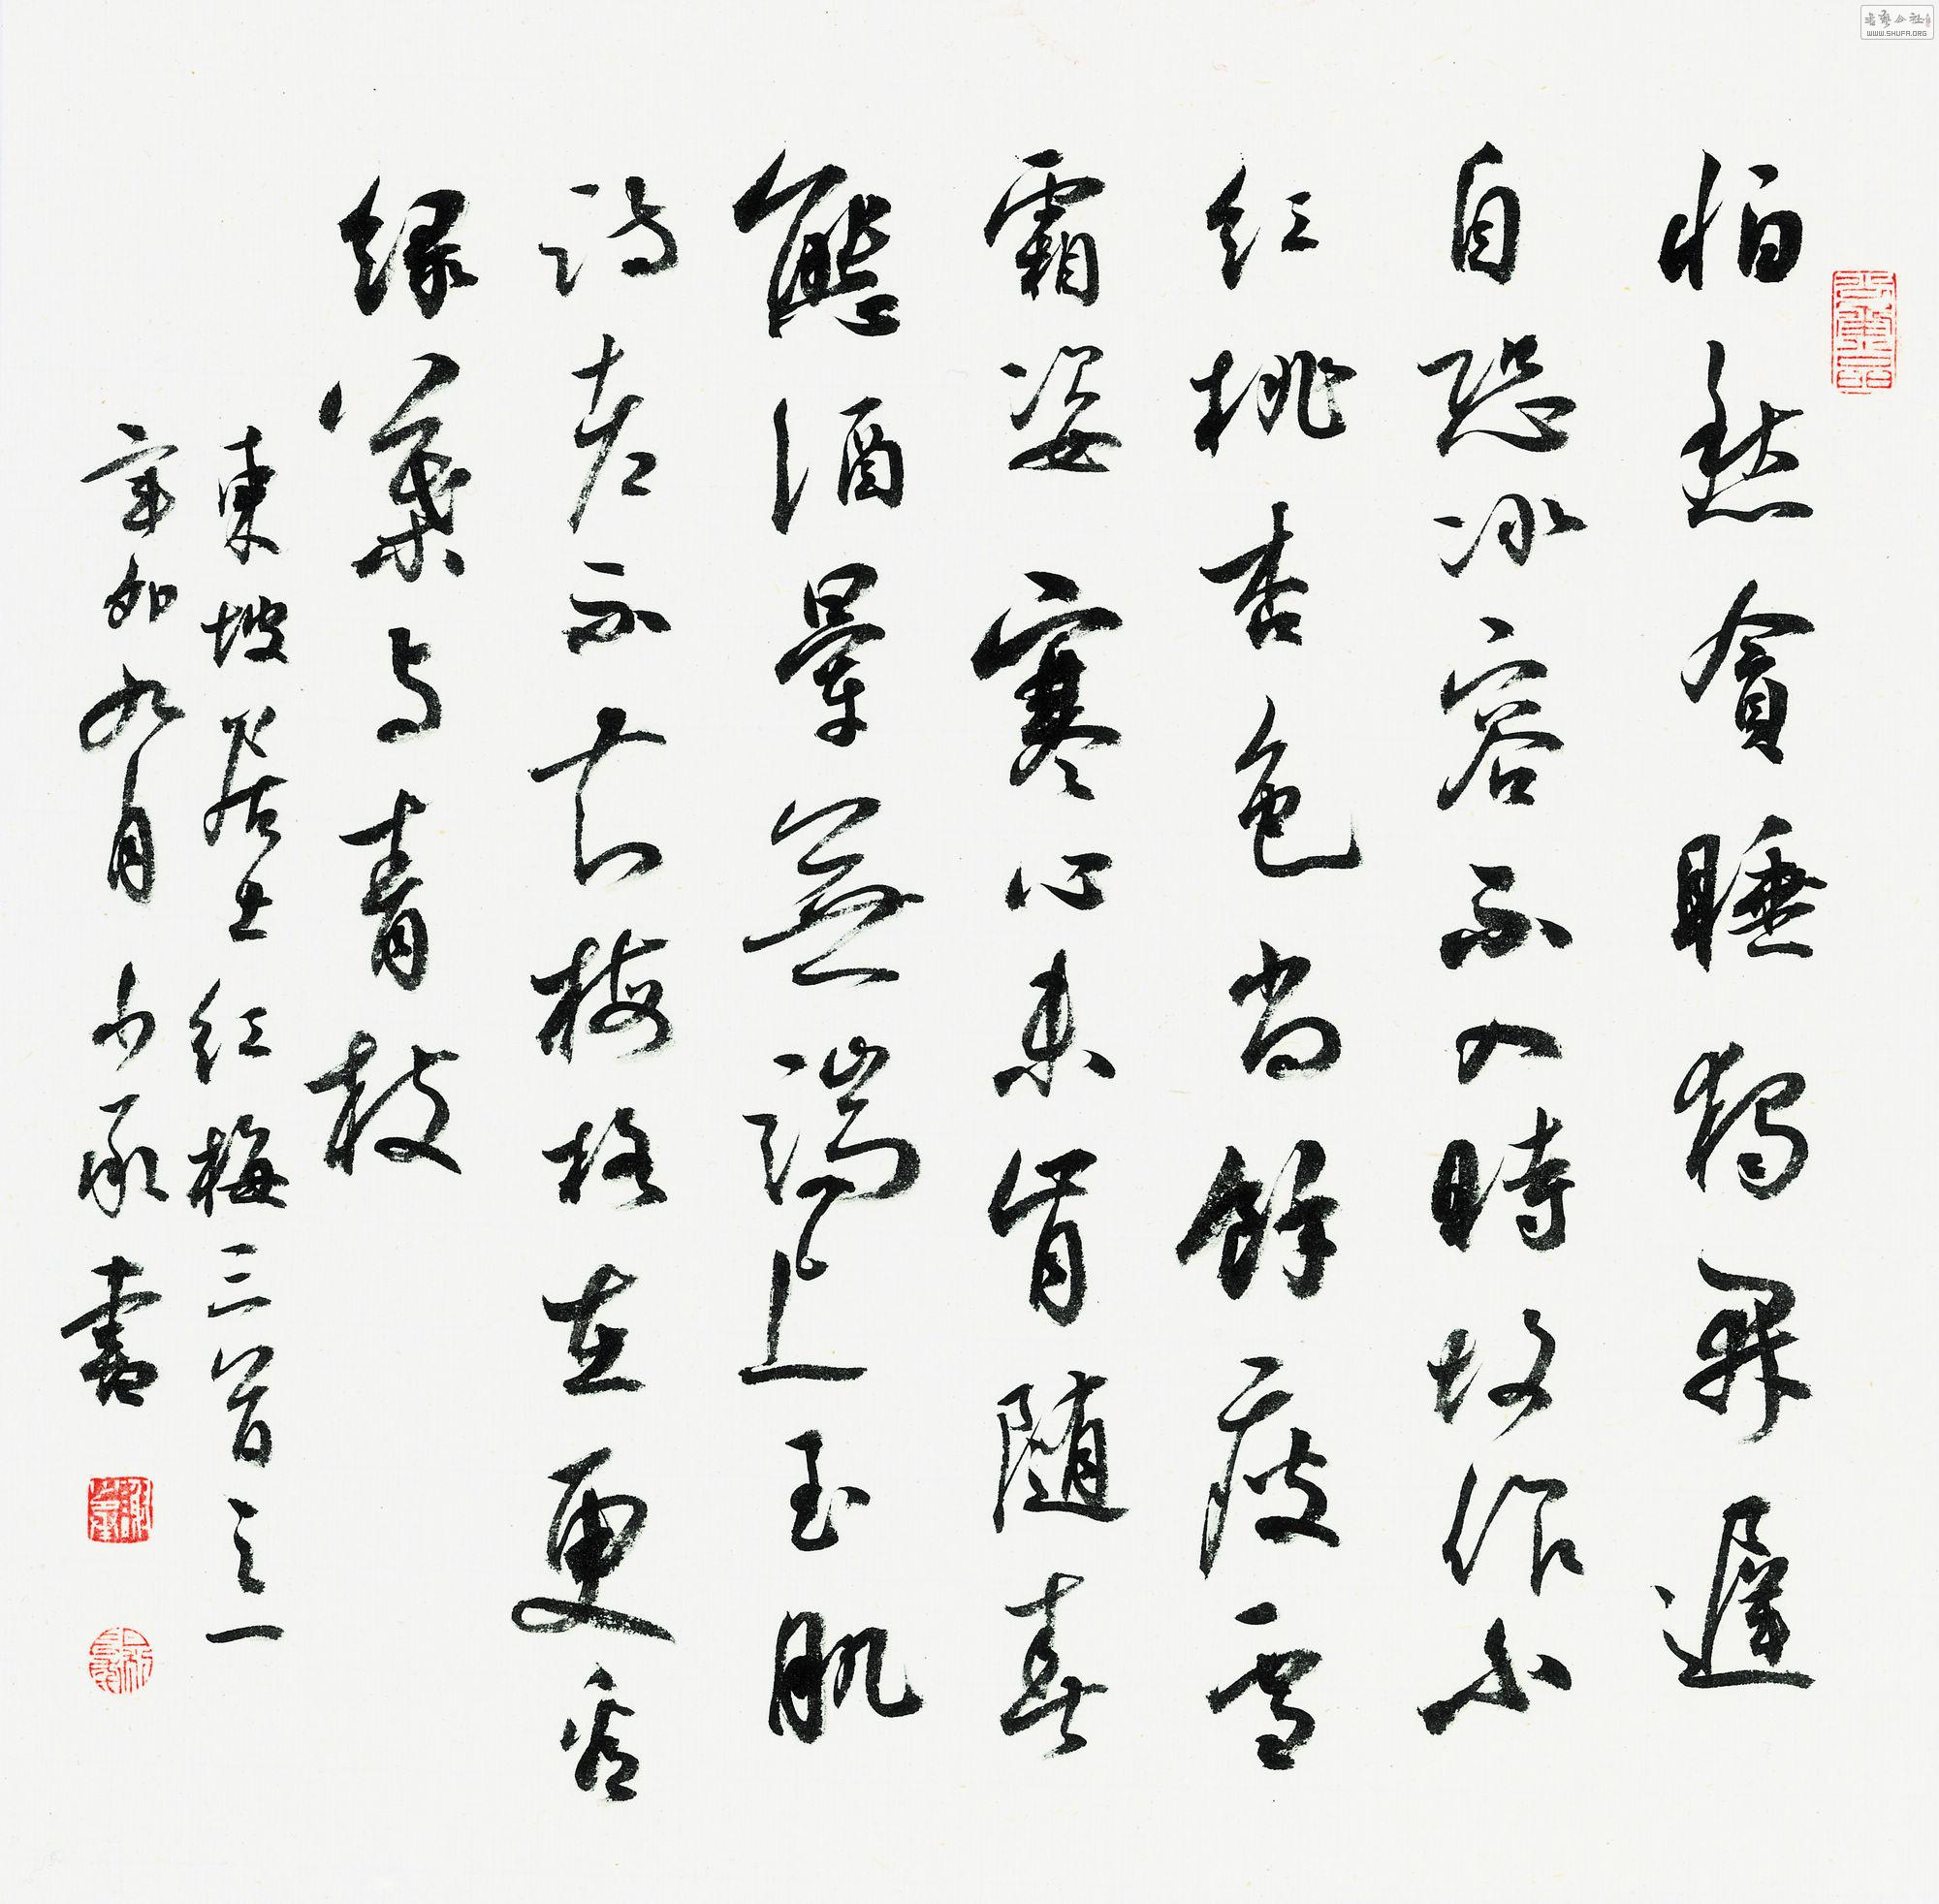 怕愁貪睡獨開遲
自恐冰容不入時故作小
紅桃杏色尚餘瘦雪
霜姿寒心未肯隨春
態酒暈無端上玉肌
詩老不知梅格在更看
緑葉與青枝
東坡居士紅梅三首之一
辛卯九月少承書
WWW.SHUFA.ORG